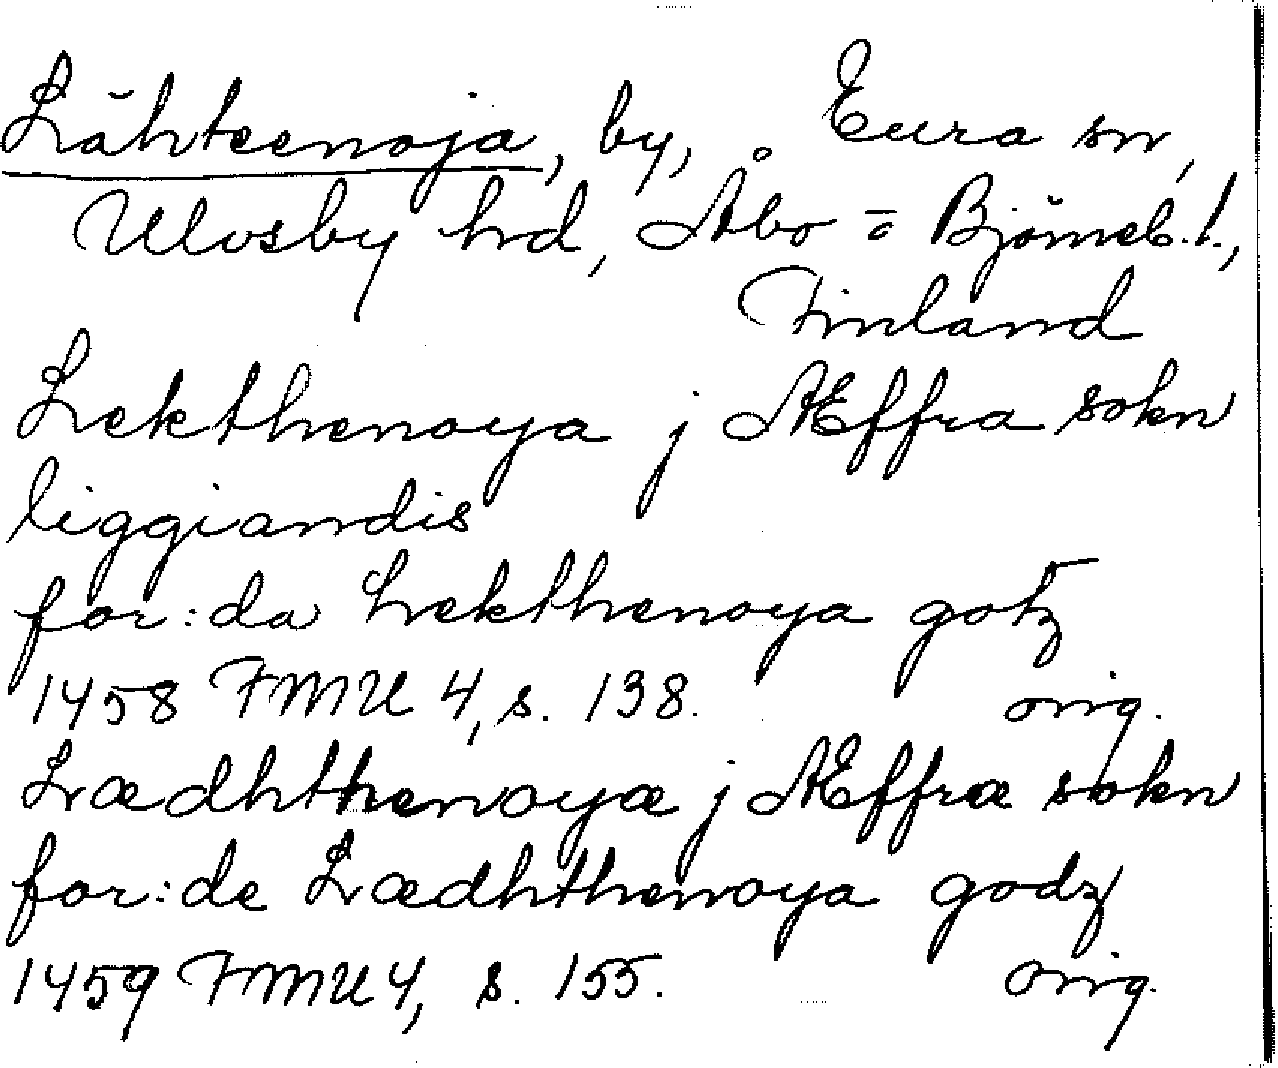 Lähteenoja, by, Eura sn,
Ulvsby hd, Åbo = Björneb. l.,
Finland
Lekthenoya j Æffra sokn
liggiandis
for:da Lekthenoya gotz
1458 FMU 4, s. 138. orig.
Lædhthenoyæ j Æffræ sokn
for:de Lædhthenoya godz
1459 FMU 4, s. 155. orig.